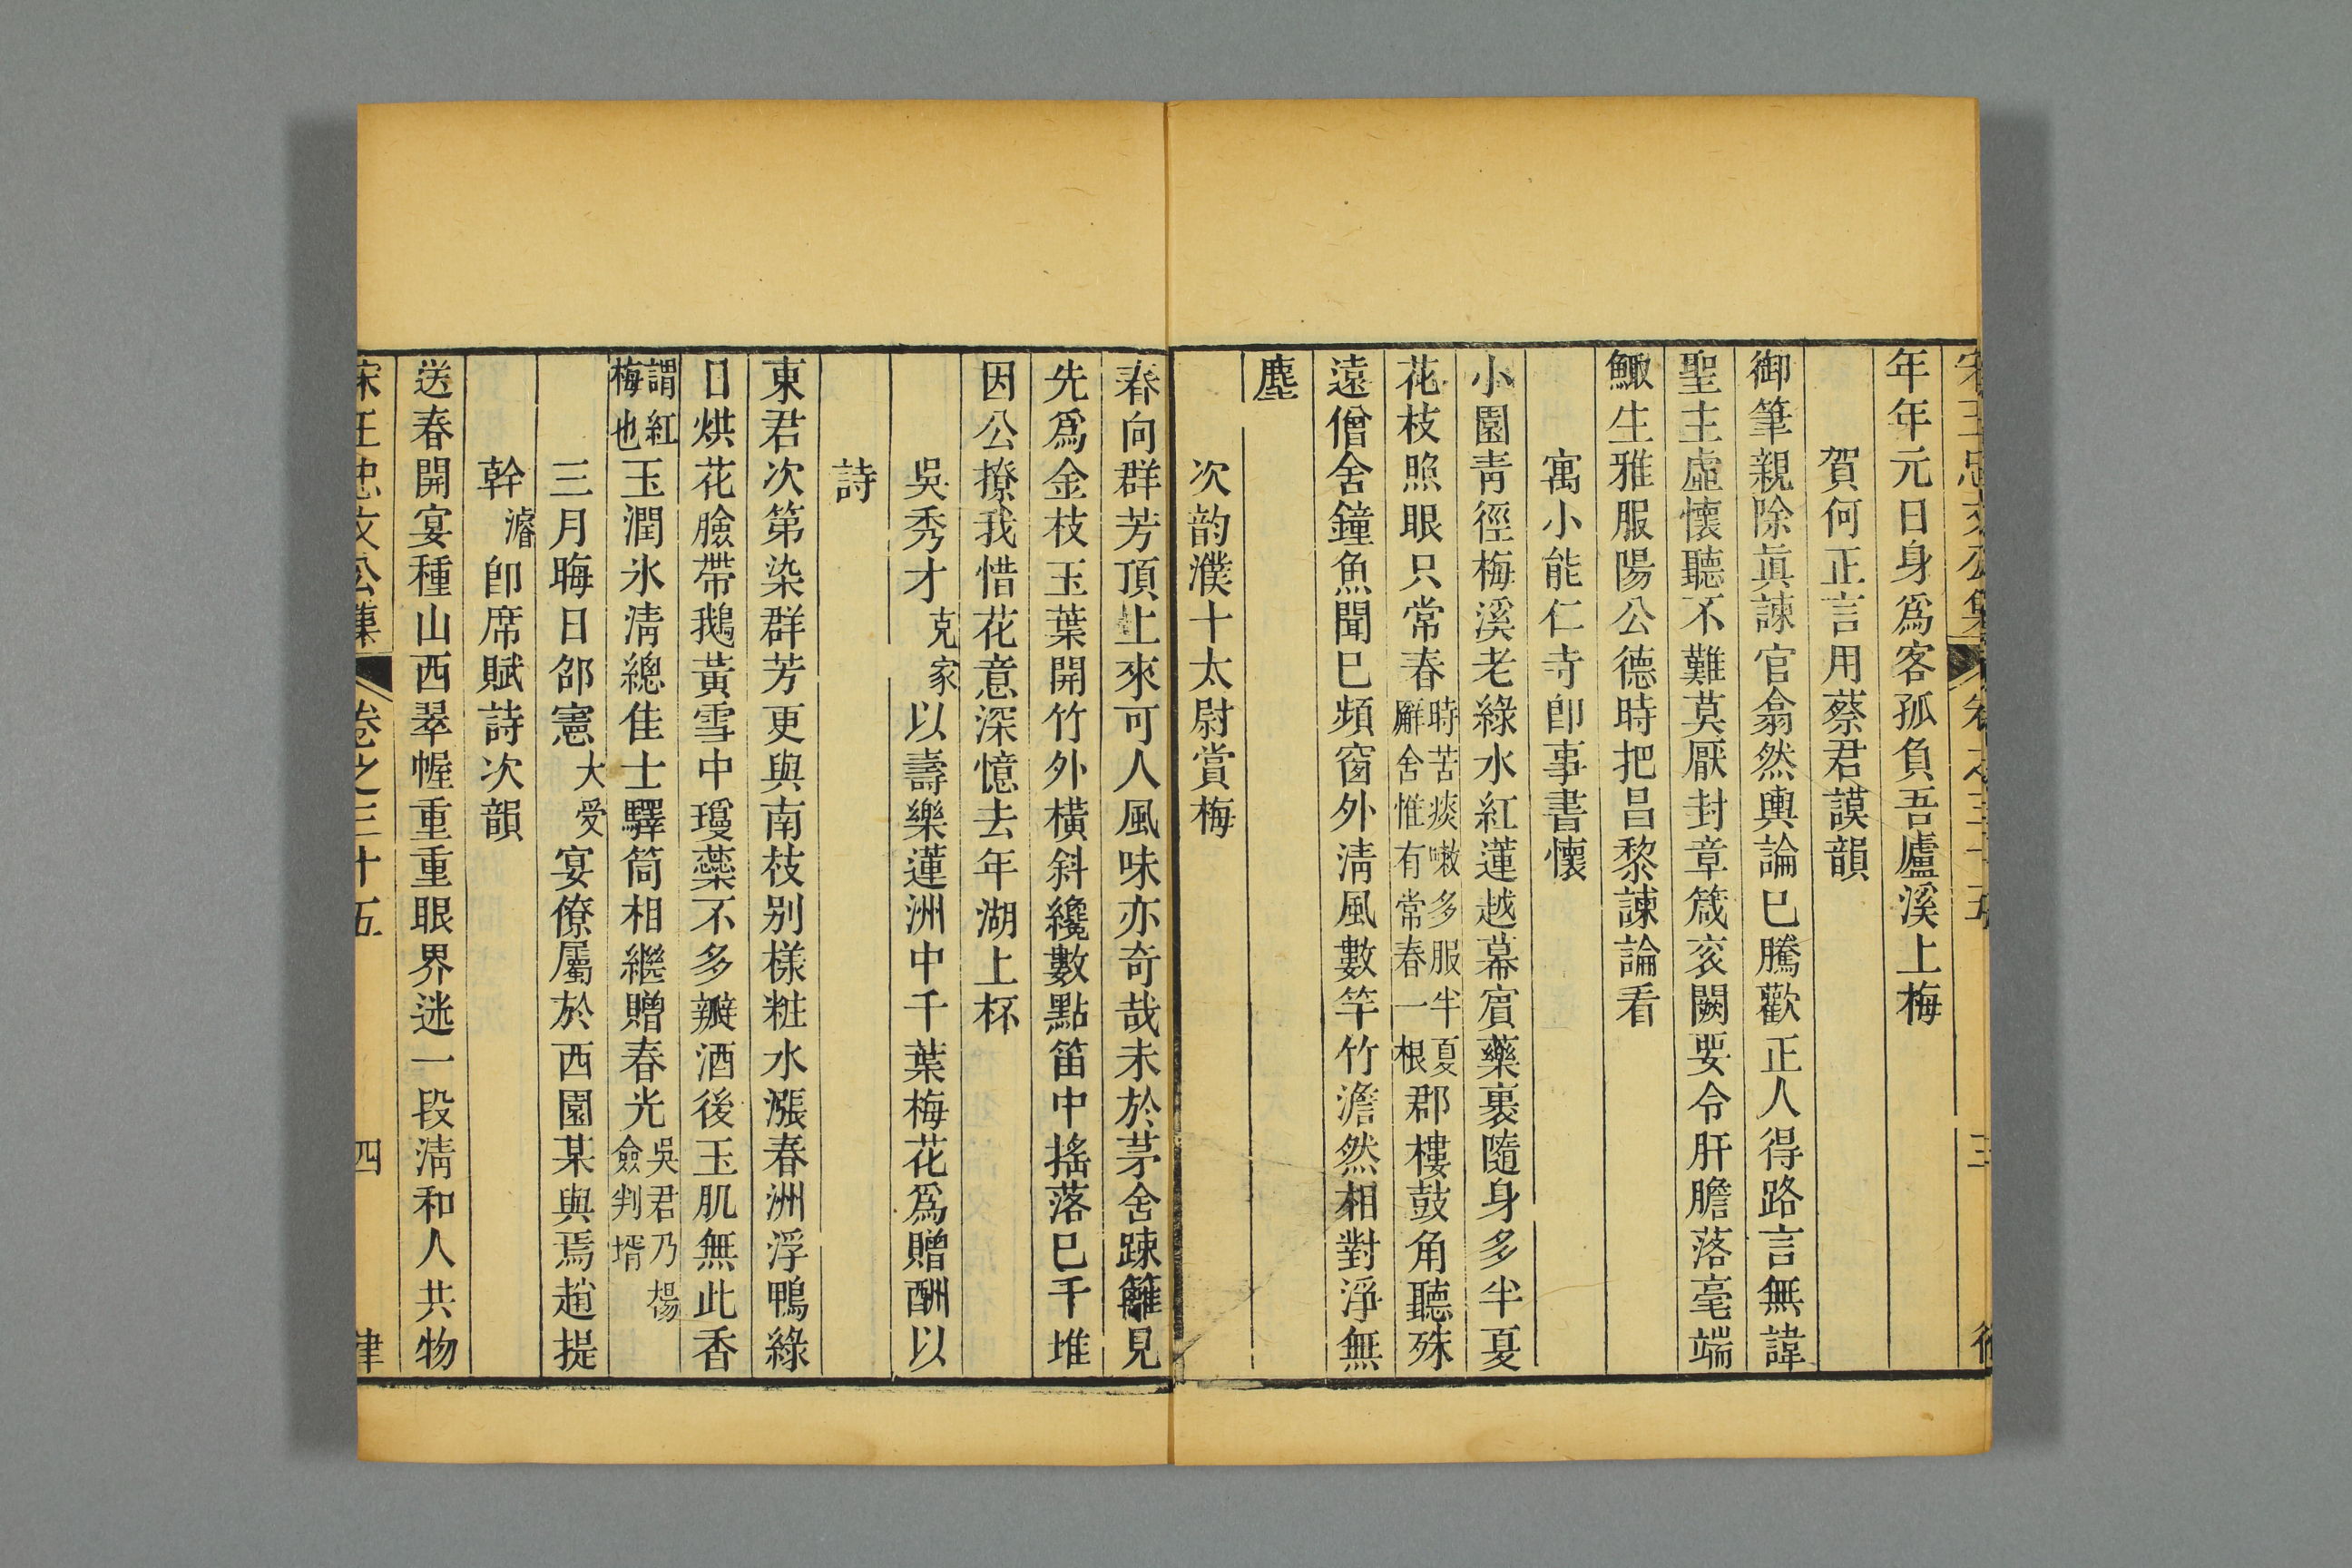 宋王忠文公集 卷之三十五 三 律
年年元日身爲客孤負吾廬溪上梅
賀何正言用蔡君謨韻
御筆親除眞諫官翕然輿論巳騰歡正人得路言無諱
聖主虛懷聽不難莫厭封章箴亥闕要令肝膽落毫端
鯫生雅服陽公德時把呂黎諫論看
寓小能仁寺卽事書懷
小園靑徑梅溪老綠水紅蓮越幕賔藥裹隨身多半夏
花枝照眼只常春時苦痰嗽多服半夏廨舍惟有常春一根郡樓鼓角聽殊
遠僧舍鐘魚聞巳頻窗外淸風數竿竹澹然相對淨無
塵
次韵濮十太尉賞梅
春向群芳頂上來可人風味亦奇哉未於茅舍踈籬見
先爲金枝玉葉開竹外橫斜纔數點笛中搖落巳千堆
因公撩我惜花意深憶去年湖上杯
吳秀才克家以壽樂蓮洲中千葉梅花爲贈酬以
詩
東君次第染群芳更與南枝别樣粧水漲春洲浮鴨綠
日烘花臉帶鵝黃雪中瓊蘂不多瓣酒後玉肌無此香
謂紅梅也玉潤氷淸總佳士驛筒相繼贈春光吳君乃楊僉判壻
三月晦日邵憲大受宴僚屬於西園某與焉趙提
幹濬卽席賦詩次韻
送春開宴種山西翠幄重重眼界迷一段淸和人共物
宋王忠文公集 卷之三十五 四 律